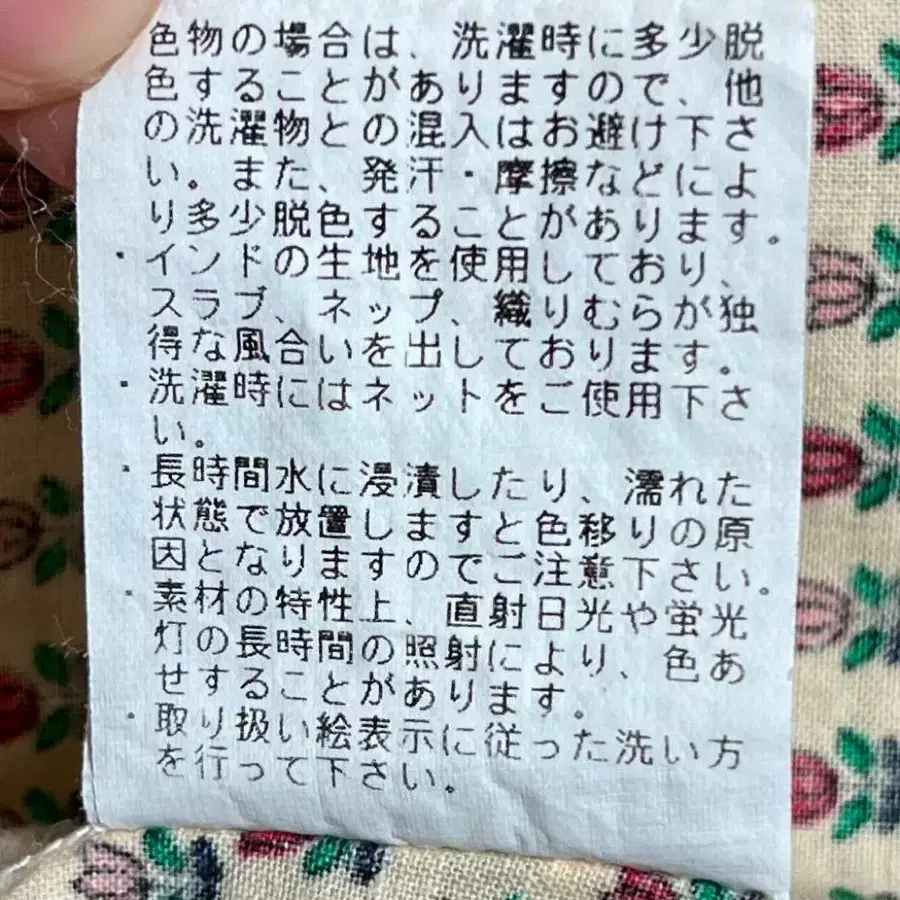 色物の場合は、洗濯時に多少脱
色することがありますので、他
の洗濯物との混入はお避け下さ
い。また、発汗・摩擦などによ
り多少脱色することがあります。
・インドの生地を使用しており、
スラブ、ネップ、織りむらが独
得な風合いを出しております。
・洗濯時にはネットをご使用下さ
い。
・長時間水に浸漬したり、濡れた
状態で放置しますと色移りの原
因となりますのでご注意下さい。
・素材の特性上、直射日光や蛍光
灯の長時間の照射により、色あ
せすることがあります。
・取り扱い絵表示に従った洗い方
を行って下さい。